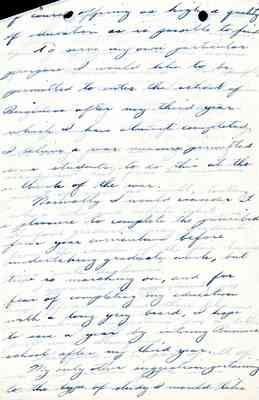 of course offering as high a quality
of education as is possible to find
To serve my own particular
purpose I would like to be
permitted to enter the school of
Business after my third year
which I have almost completed.
I believe a war measure permitted
some students to do this at the
outbreak of the war.
Normally I would consider it
a pleasure to complete the prescribed
four year curriculum before
undertaking graduate work, but
time is marching on, and for
fear of completing my education
with a long grey beard, I hope
to save a year by entering Business
school after my third year.
My only other suggestion pertaining
to the type of study I would like